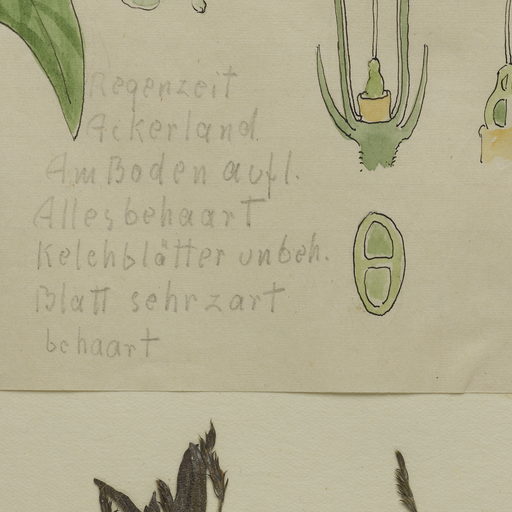 Regenzeit
Ackerland
Am Boden aufl.
Alles behaart
Kelchblätter unbeh.
Blatt sehr zart
behaart